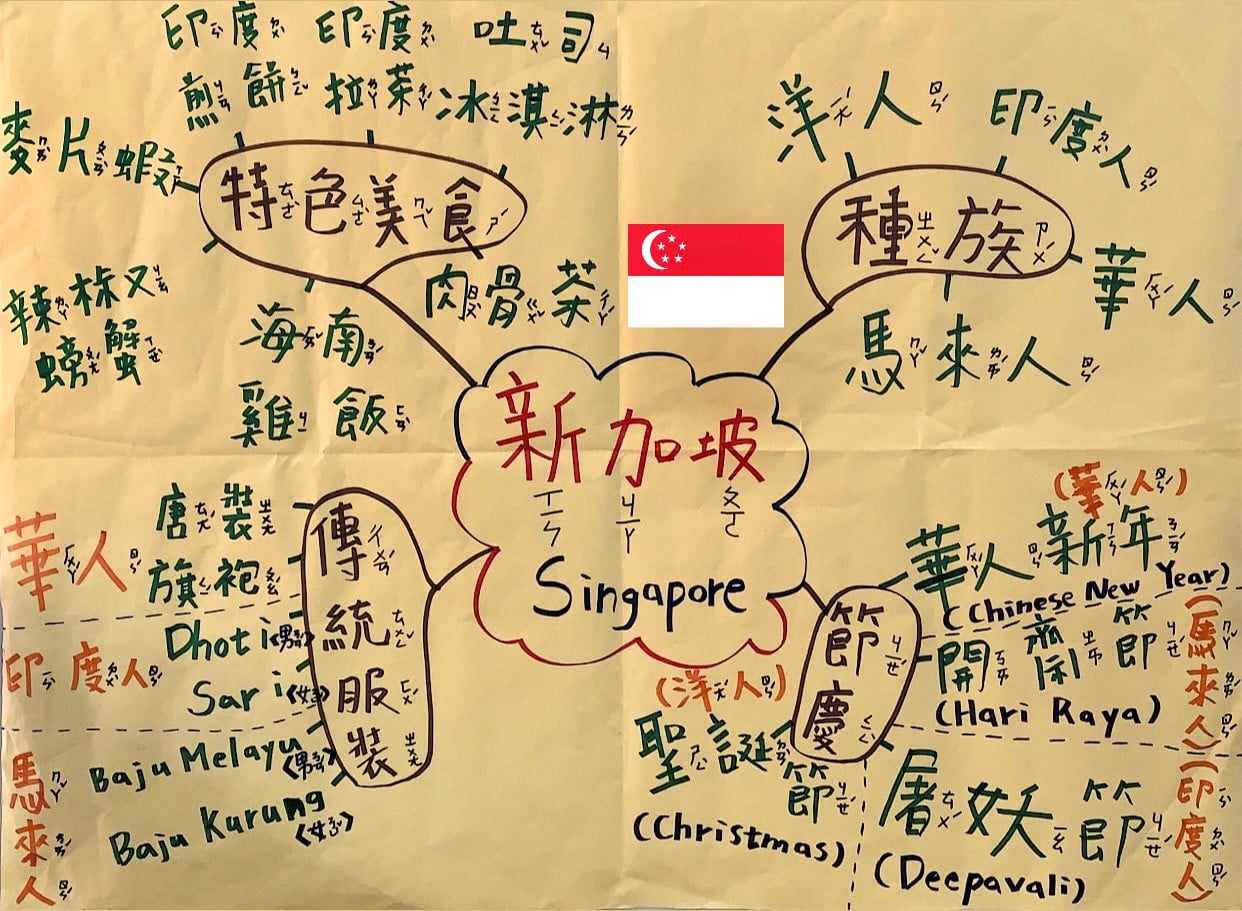 印度 印度 吐司
煎餅 拉茶 冰淇淋
麥片蝦
特色美食
辣椒
螃蟹
海南
雞飯
肉骨茶
洋人
印度人
種族
華人
馬來人
新加坡
ㄒㄧㄣ ㄐㄧㄚ ㄆㄛ
Singapore
傳統服裝
華人
唐裝
旗袍
印度人
Dhoti(男)
Sari(女)
馬來人
Baju Melayu
(男)
Baju Kurung
(女)
節慶
(華人)
華人新年
(Chinese New Year)
開齋節
(Hari Raya)
(馬來人)
(洋人)
聖誕節
(Christmas)
屠妖節
(Deepavali)
(印度人)